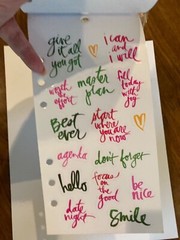 give it all
you got
I can
and I
will
worth
the effort
master
plan
fill
today
with
joy
Best
ever
start
where
you are
now
agenda
don't forget
hello
focus
on
the
good
be
nice
date
night
Smile